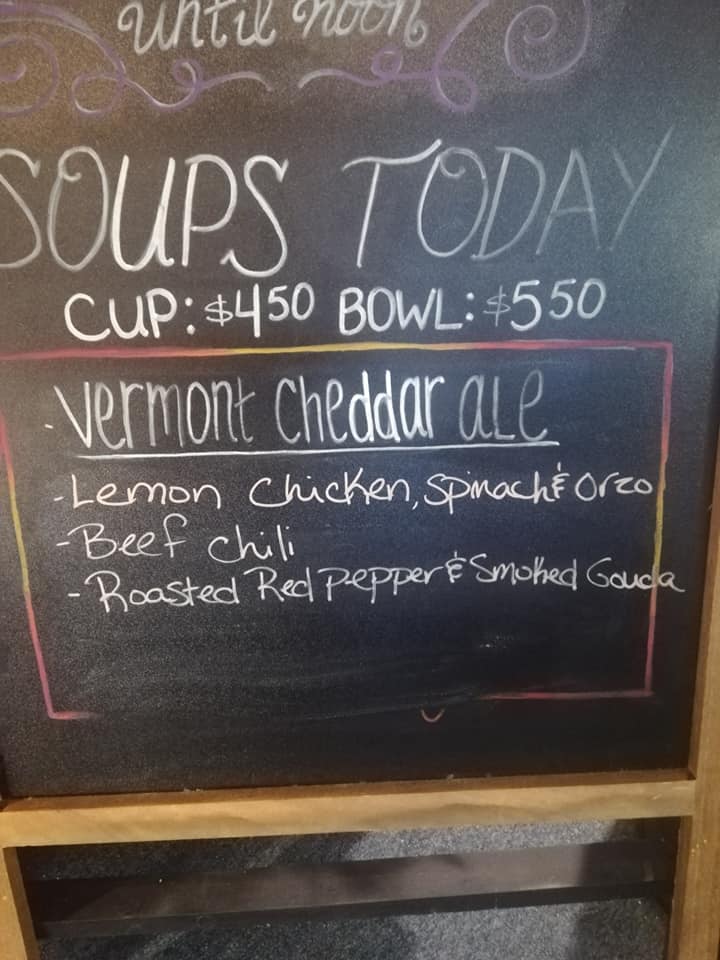 until noon
SOUPS TODAY
CUP: $450 BOWL: $550
- Vermont Cheddar ALE
- Lemon Chicken, Spinach & Orzo
- Beef Chili
- Roasted Red Pepper & Smoked Gouda